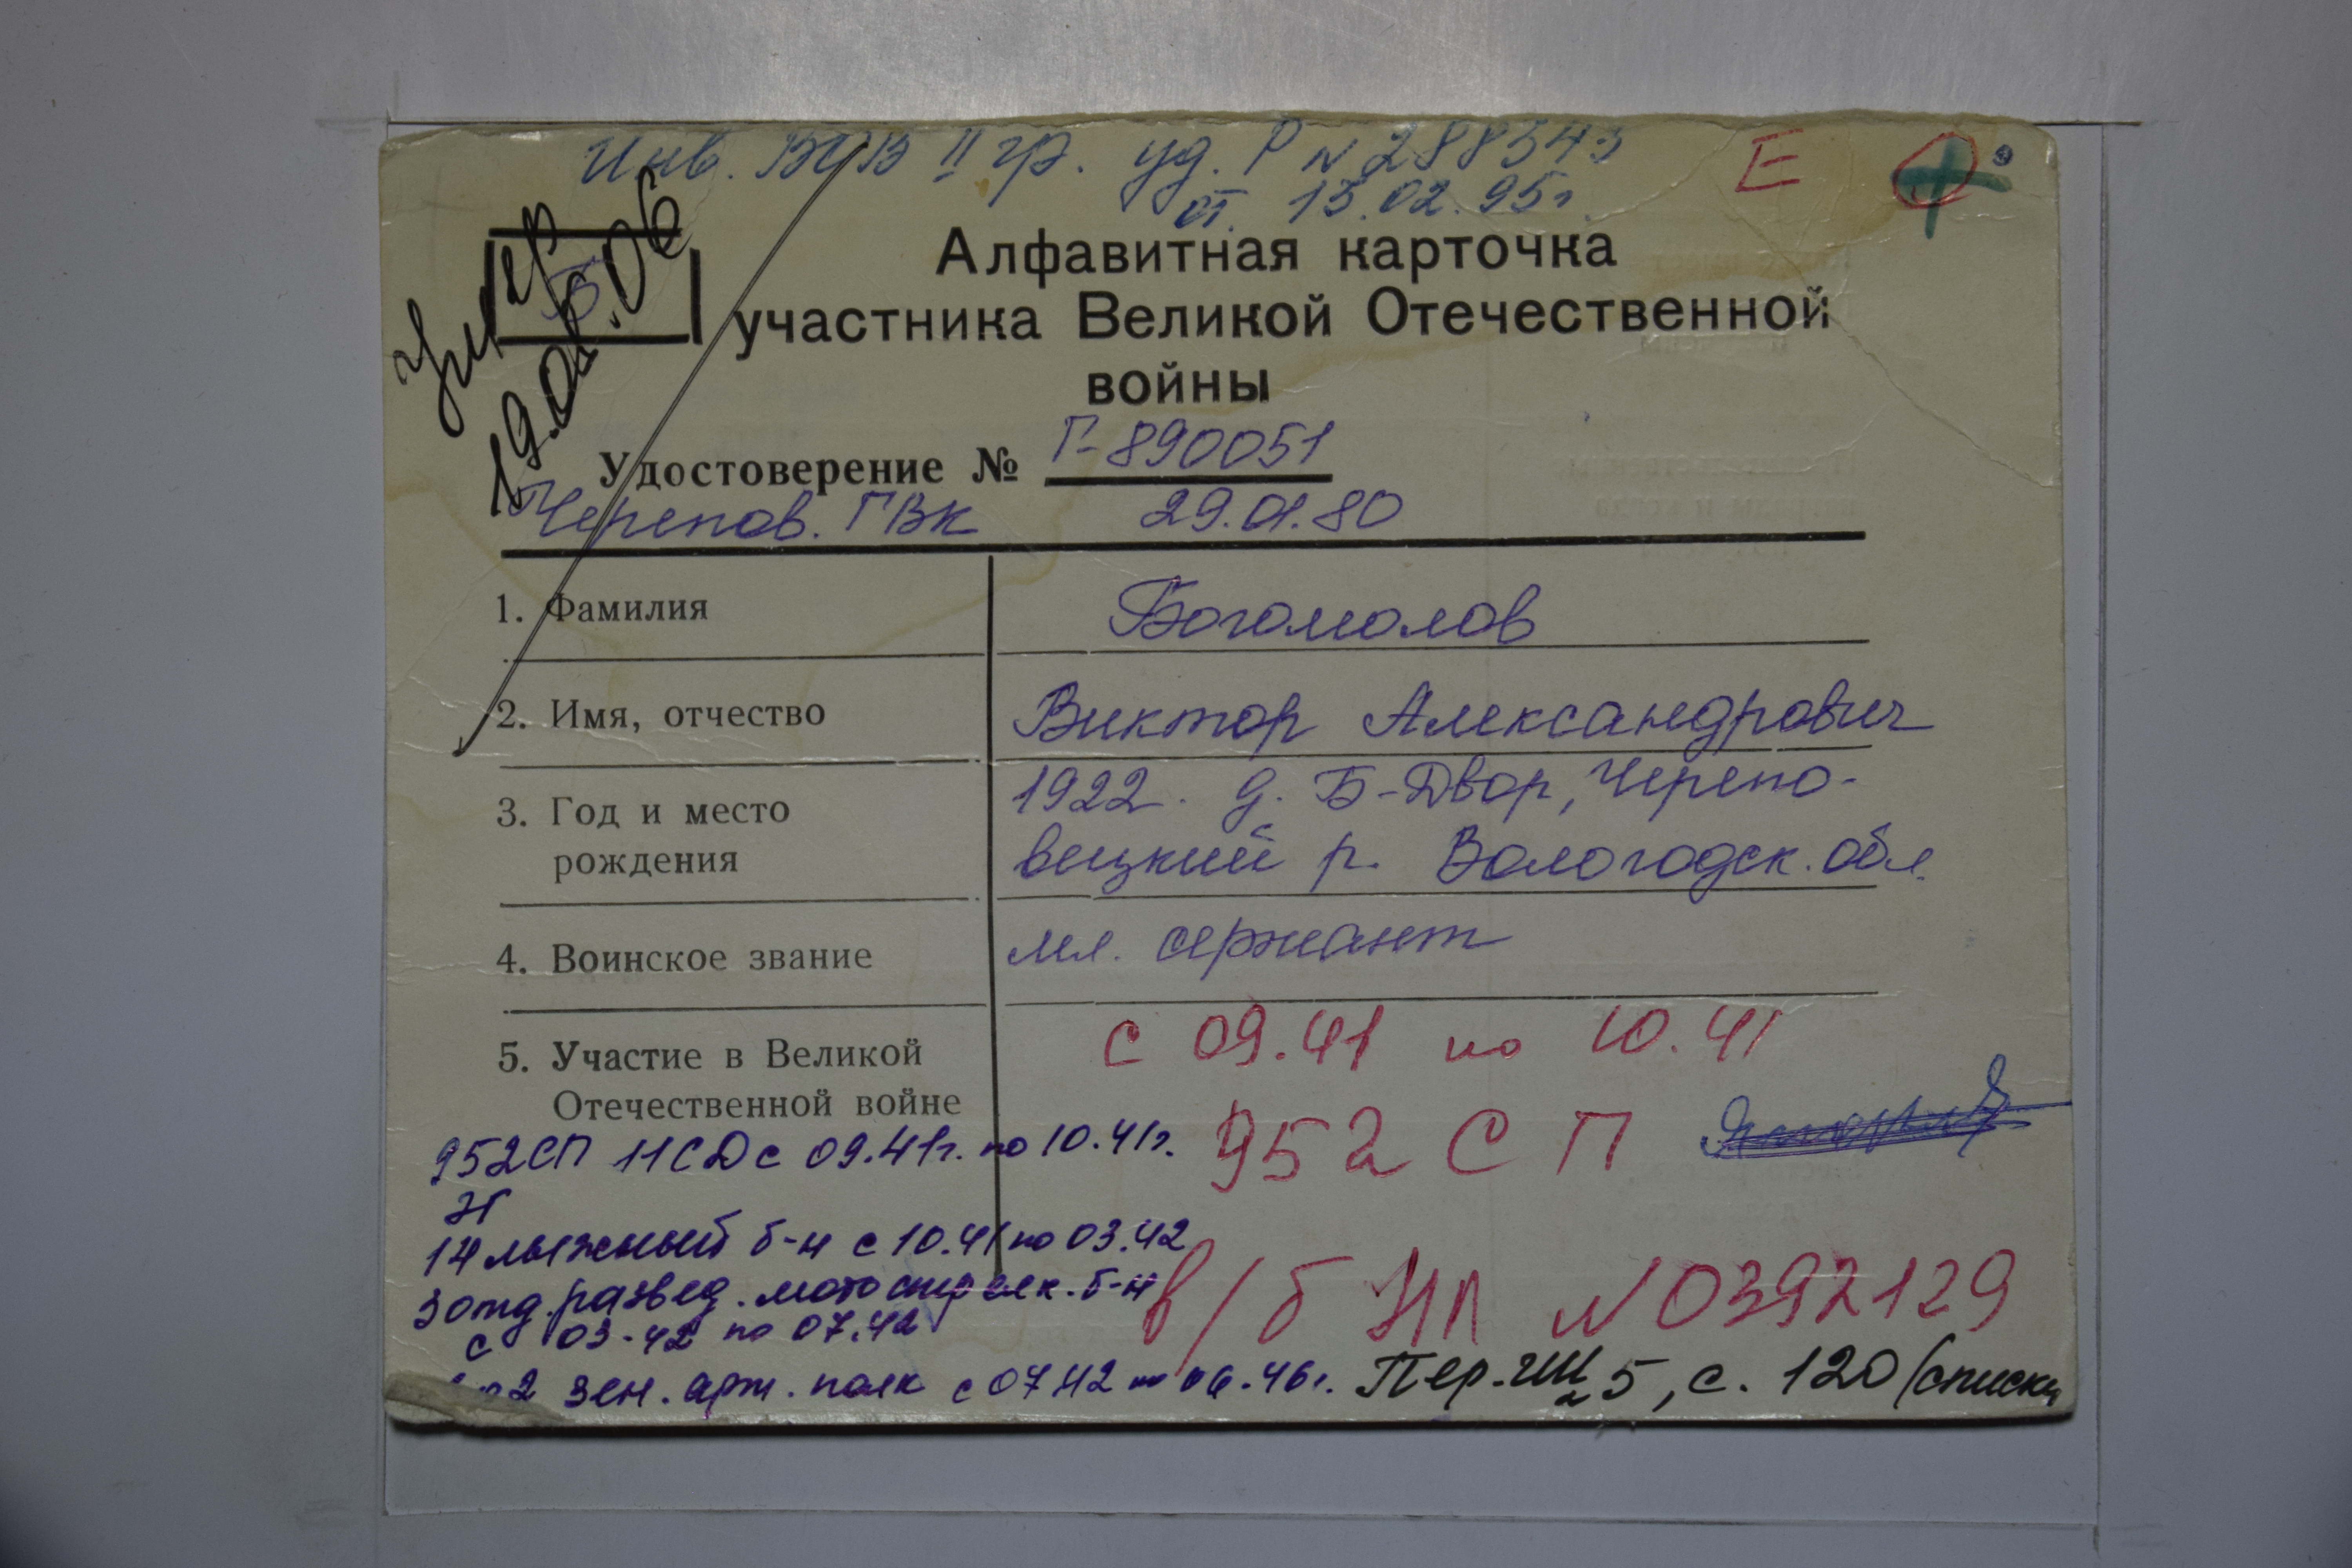 Инв. ВОВ II гр. уд. Р № 288543
от 13.02.95г.
Е
Умер
19.04.06
Б
Алфавитная карточка
участника Великой Отечественной
войны
Удостоверение № Г-890051
Черепов. ГВК 29.01.80
1. Фамилия Богомолов
2. Имя, отчество Виктор Александрович
3. Год и место 1922. д. Б-Двор, Черепо-
рождения вецкий р. Вологодск. обл.
4. Воинское звание мл. сержант
5. Участие в Великой с 09.41 по 10.41
Отечественной войне
952 СП
952СП 11СД с 09.41г. по 10.41г.
14 лыжный б-н с 10.41 по 03.42
3 отд. развед. мотострелк. б-н
с 03-42 по 07.42
в/б НП № 0392129
зен. арт. полк с 07.42 по 06.46г.
Пер. 5, с. 120 (списки